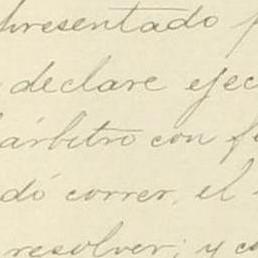 presentado p
declare ejec
árbitro con f
dó correr, el
resolver; y co